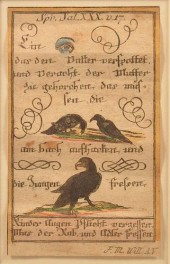 Spr. Sal. XXX. v. 17.
Ein
das den Vatter verspottet,
und Veracht der Mutter
zu gehorchen, das müs-
sen die
am bach aushacken, und
die Jungen fressen.
Kinder Augen Pflicht vergessen,
Mus der Rab, und Adler fressen